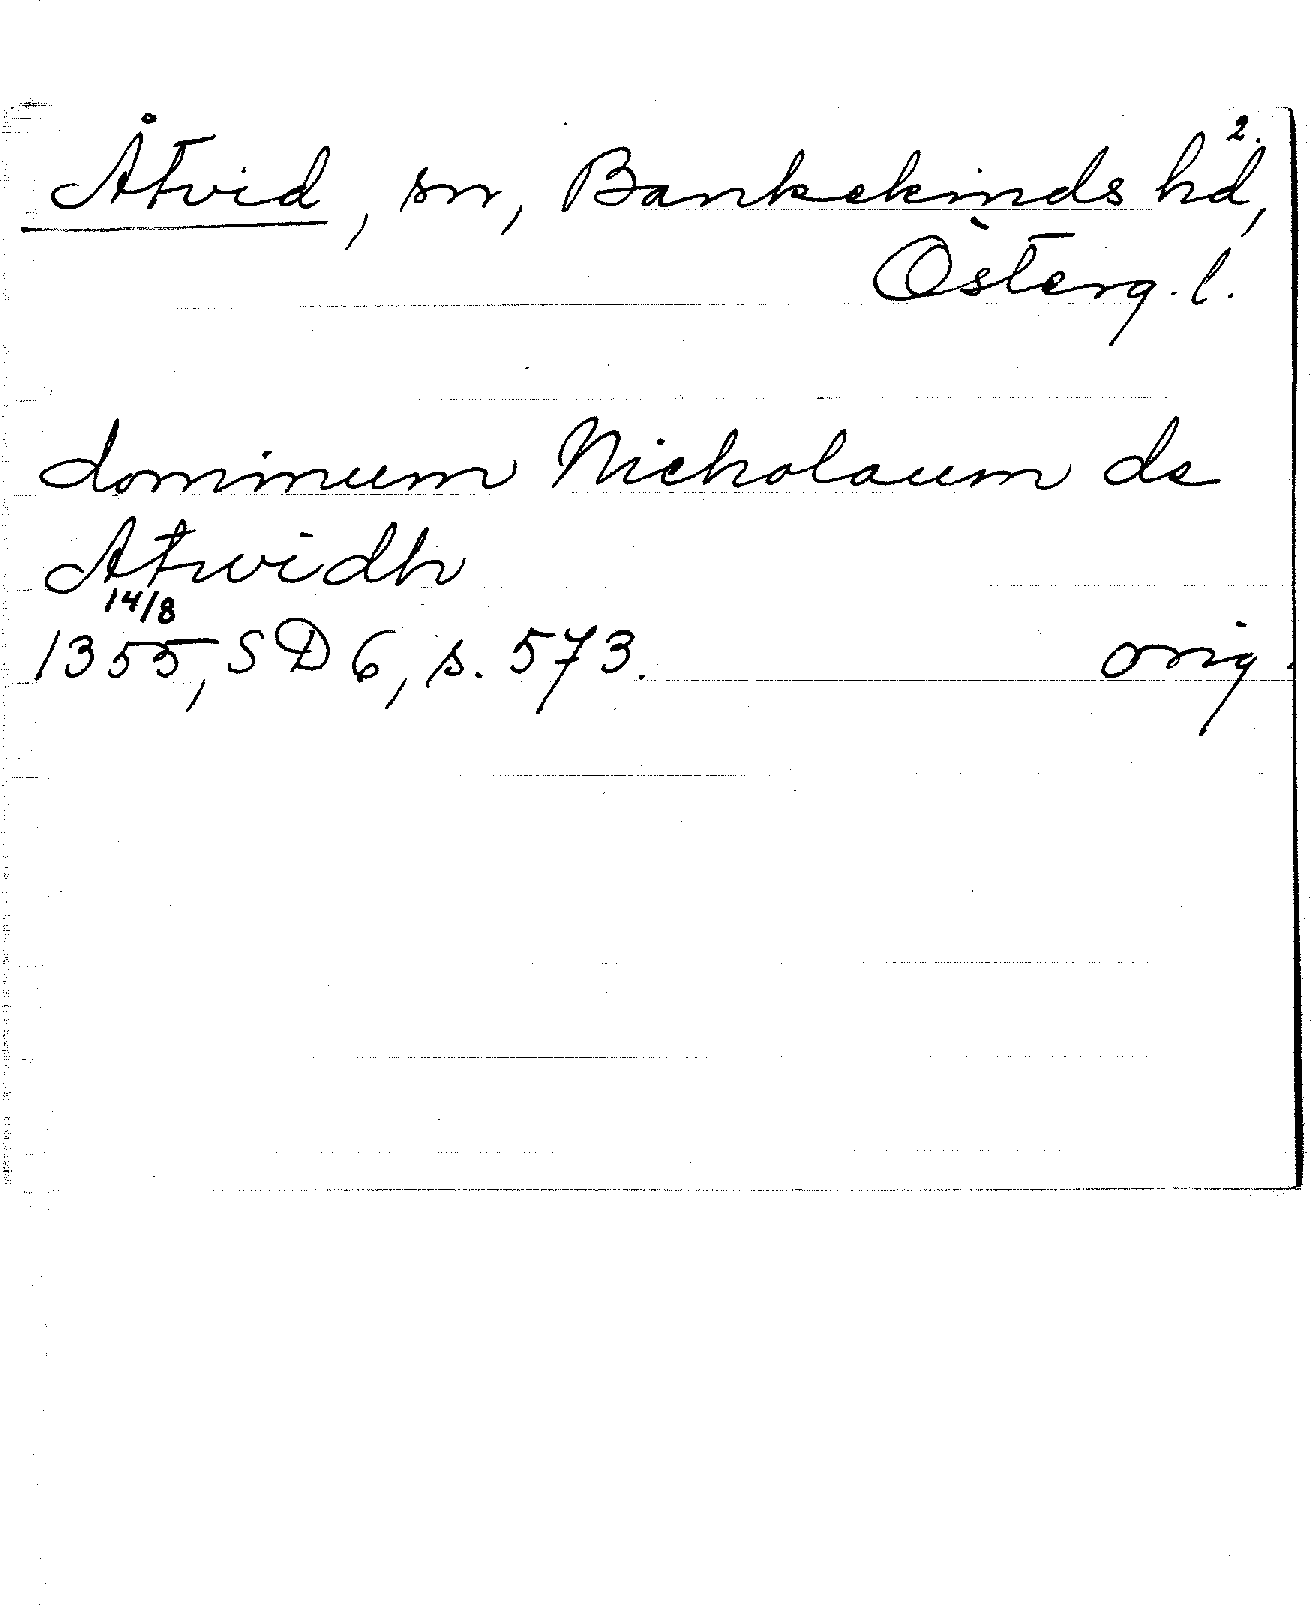 2.
Åtvid, sn, Bankekinds hd,
Österg. l.
dominum Nicholaum de
Atwidh
14/8
1355, SD 6, s. 573. orig.